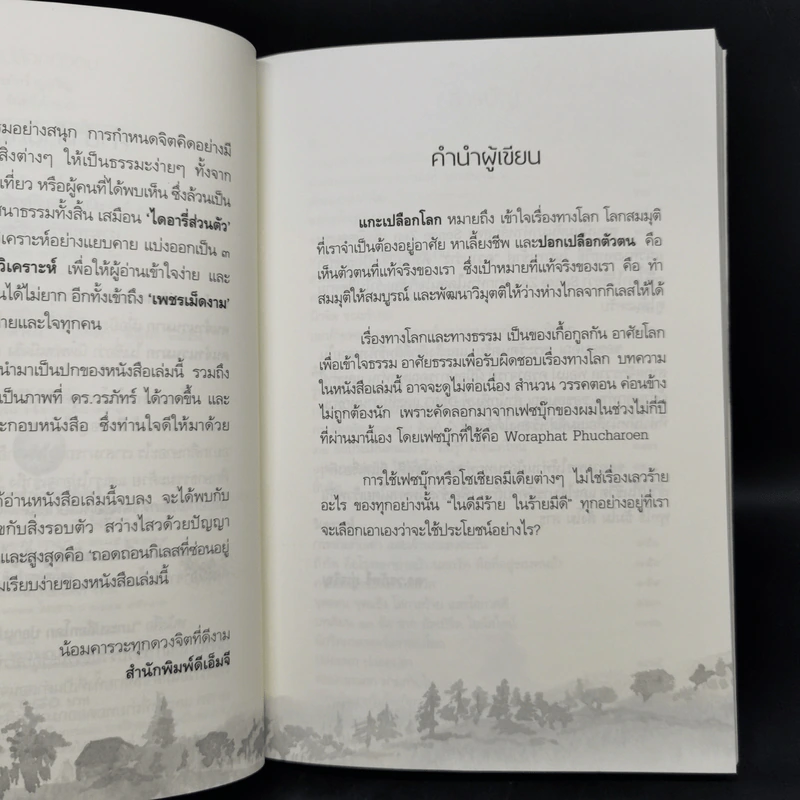 มอย่างสนุก การกำหนดจิตคิดอย่างมี
สิ่งต่างๆ ให้เป็นธรรมะง่ายๆ ทั้งจาก
เที่ยว หรือผู้คนที่ได้พบเห็น ซึ่งล้วนเป็น
นาธรรมทั้งสิ้น เสมือน 'ไดอารี่ส่วนตัว'
เคราะห์อย่างแยบคาย แบ่งออกเป็น ๓
วิเคราะห์ เพื่อให้ผู้อ่านเข้าใจง่าย และ
นได้ไม่ยาก อีกทั้งเข้าถึง 'เพชรเม็ดงาม'
ายและใจทุกคน
นำมาเป็นปกของหนังสือเล่มนี้ รวมถึง
เป็นภาพที่ ดร.วรภัทร์ ได้วาดขึ้น และ
ะกอบหนังสือ ซึ่งท่านใจดีให้มาด้วย
อ่านหนังสือเล่มนี้จบลง จะได้พบกับ
ขกับสิ่งรอบตัว สว่างไสวด้วยปัญญา
และสูงสุดคือ 'ถอดถอนกิเลสที่ซ่อนอยู่
มเรียบง่ายของหนังสือเล่มนี้
น้อมคารวะทุกดวงจิตที่ดีงาม
สำนักพิมพ์ดีเอ็มจี
คำนำผู้เขียน
แกะเปลือกโลก หมายถึง เข้าใจเรื่องทางโลก โลกสมมุติ
ที่เราจำเป็นต้องอยู่อาศัย หาเลี้ยงชีพ และปอกเปลือกตัวตน คือ
เห็นตัวตนที่แท้จริงของเรา ซึ่งเป้าหมายที่แท้จริงของเรา คือ ทำ
สมมุติให้สมบูรณ์ และพัฒนาวิมุตติให้ว่างห่างไกลจากกิเลสให้ได้
เรื่องทางโลกและทางธรรม เป็นของเกื้อกูลกัน อาศัยโลก
เพื่อเข้าใจธรรม อาศัยธรรมเพื่อรับผิดชอบเรื่องทางโลก บทความ
ในหนังสือเล่มนี้ อาจจะดูไม่ต่อเนื่อง สำนวน วรรคตอน ค่อนข้าง
ไม่ถูกต้องนัก เพราะคัดลอกมาจากเฟซบุ๊กของผมในช่วงไม่กี่ปี
ที่ผ่านมานี้เอง โดยเฟซบุ๊กที่ใช้คือ Woraphat Phucharoen
การใช้เฟซบุ๊กหรือโซเชียลมีเดียต่างๆ ไม่ใช่เรื่องเลวร้าย
อะไร ของทุกอย่างนั้น "ในดีมีร้าย ในร้ายมีดี" ทุกอย่างอยู่ที่เรา
จะเลือกเอาเองว่าจะใช้ประโยชน์อย่างไร?